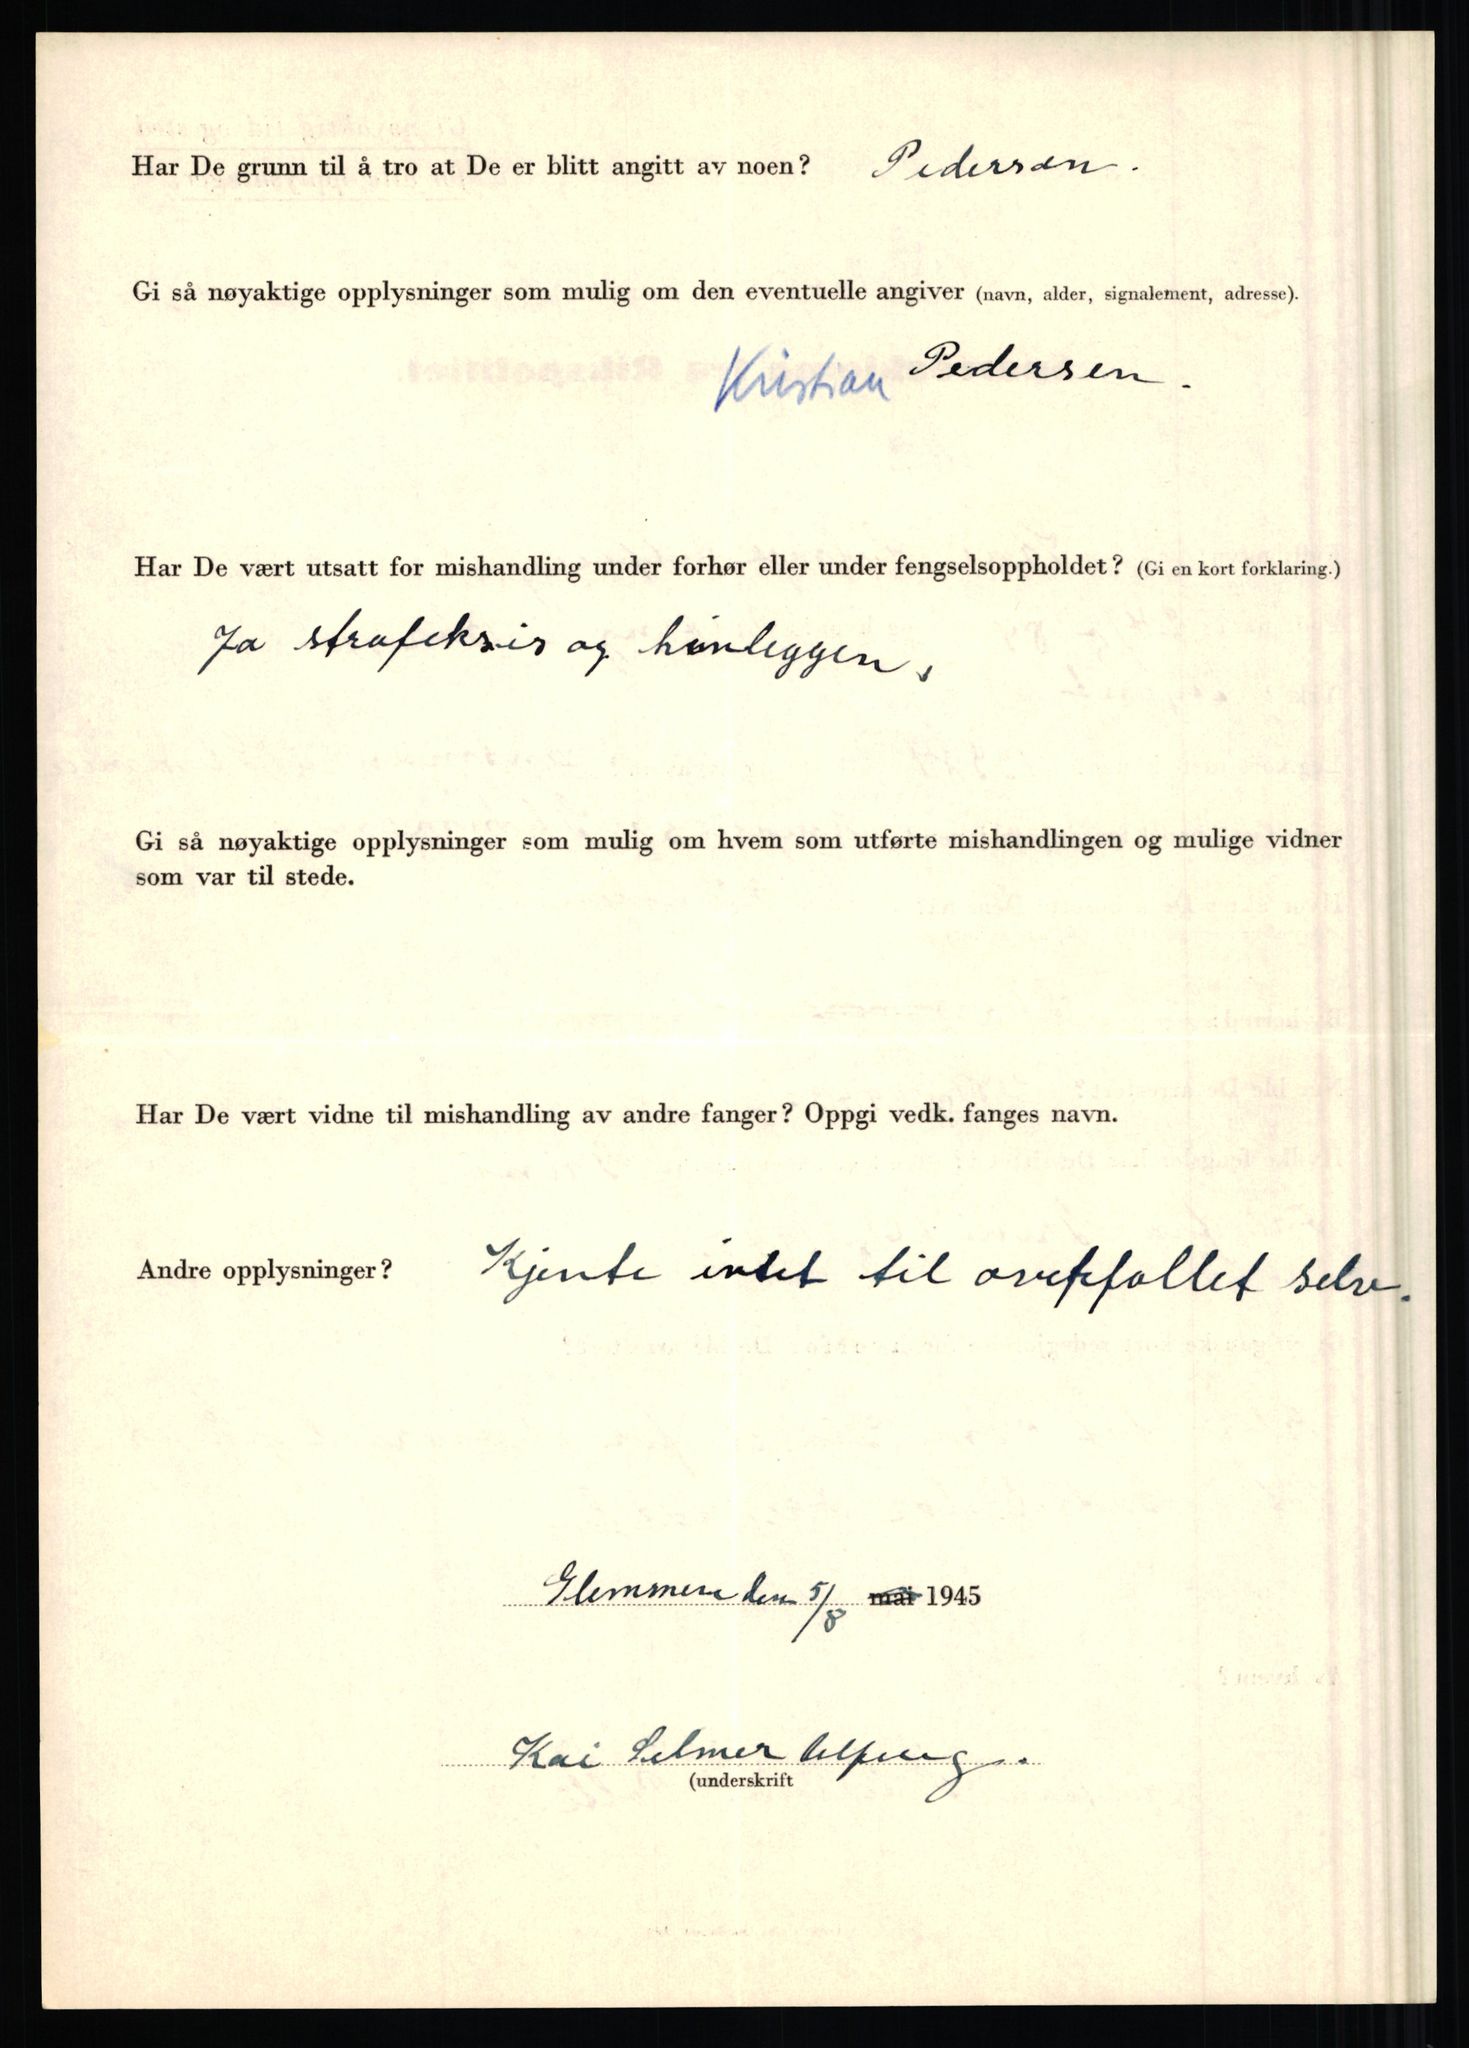 Har De grunn til å tro at De er blitt angitt av noen? Pedersen.
Gi så nøyaktige opplysninger som mulig om den eventuelle angiver (navn, alder, signalement, adresse).
Kristian Pedersen.
Har De vært utsatt for mishandling under forhør eller under fengselsoppholdet? (Gi en kort forklaring.)
Ja strafeksis og
Gi så nøyaktige opplysninger som mulig om hvem som utførte mishandlingen og mulige vidner
som var til stede.
Har De vært vidne til mishandling av andre fanger? Oppgi vedk. fanges navn.
Andre opplysninger? Kjente intet til overfallet selv.
Glemmen den 5/8 mai 1945
Kai Selmer
(underskrift